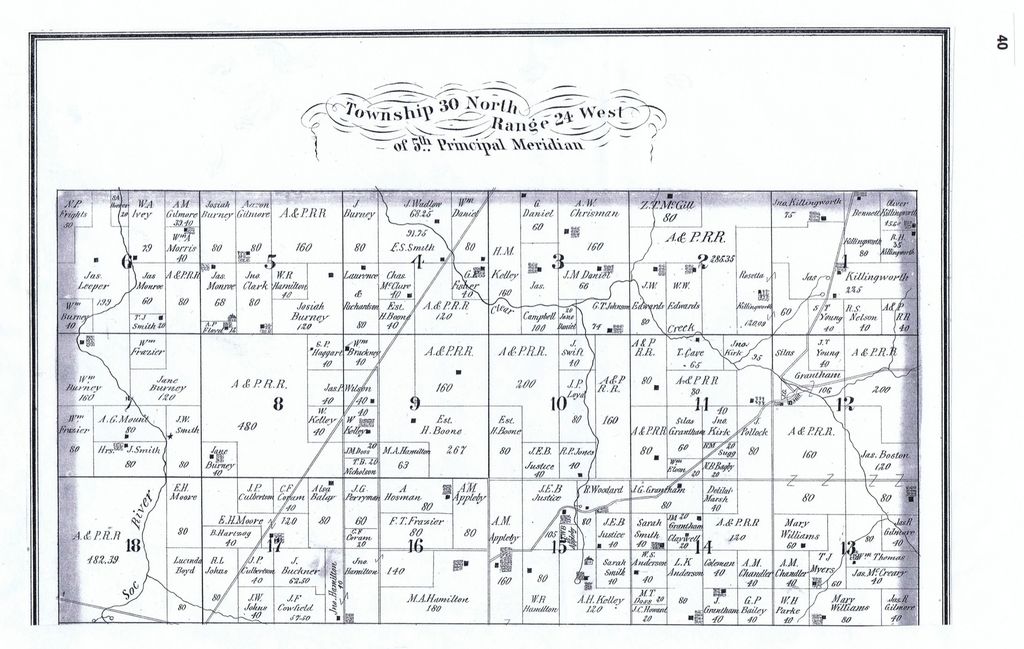 40
Township 30 North
Range 24 West
of 5th Principal Meridian
N.P. Frights
80
20
W.A. Ivey
79
A.M. Gilmore
39.40
Wm A Morris
40
Josiah Burney
80
Aaron Gilmore
80
A.& P.R.R.
160
J Burney
80
J. Wadlow
68.25
91.75
E.S. Smith
80
Wm Daniel
80
H.M. Kelley
G. Daniel
60
A.W. Chrisman
160
Z.T. McGill
80
A.& P.R.R.
285.35
Jno. Killingworth
75
Bennett
Killingworth
Oliver Killingworth
R.H. Killingworth
35
6
5
4
3
2
1
Jas. Leeper
139
Jas Monroe
60
A.&P.R.R
80
Jas. Monroe
68
Jno. Clark
80
W.R Hamilton
40
Josiah Burney
120
Laurence & Richardson
80
Chas. McClure
40
Est. H.Boone
40
G. Fisher
40
A.& P.R.R
120
Clear
Creek
Jas. Campbell
100
J.M Daniel
66
20
Jane Daniel
G.T. Johnson
74
J.W. Edwards
80
W.W. Edwards
Rosetta Killingworth
120.09
60
Jas Killingworth
225
S Young
40
R.S. Nelson
40
A.& P RR
40
Wm Burney
40
T.J Smith 20
A.P. Floyd
Wm Frazier
40
Wm Burney
160
Jane Burney
120
A.& P.R.R.
480
G.P. Hoggart
40
Wm Bruckney
40
Jas.P. Wilson
40
40
W. Kelley
40
W Kelley
A.& P.R.R.
160
A.& P.R.R.
200
J. Swift
40
J.P. Loyd
A.& P R.R.
160
A.& P R.R.
80
T. Cave
65
Jno. Kirk
35
Silas Grantham
106
J.T Young
40
A.& P.R.R
200
7
8
9
10
11
12
Wm Frazier
80
A.G. Mount
80
Hrs. J. Smith
80
J.W. Smith
80
Jane Burney
40
J.M Doss 20
T.B. 20
Nicholson
M.A. Hamilton
63
Est. H. Boone
267
Est. H.Boone
80
J.E.B. Justice
40
R.P. Jones
40
A.& P.R.R
80
A.& P.R.R
80
Silas Grantham
60
Jno. Kirk
40
J. Pollock
R.M. 20
Sugg
Wm Elson
20
N.B Bagby
20
A.& P.R.R.
160
Jas. Boston
120
A.& P.R.R
482.39
Soc River
E.H. Moore
80
J.P. Culbertson
40
C.F. Coram
40
E.H. Moore
120
B. Hartzog
40
Alsa Balay
80
J.G. Perryman
60
C.F Coram 20
A Hosman
80
A.M. Appleby
80
F.T. Frazier
80
A.M. Appleby
160
J.E.B Justice
105
R. Woodard
80
J.E.B Justice
40
J.G. Grantham
Sarah Smith
40
J.M 20
Grantham
Claywell
20
Delilah Marsh
40
A.& P.R.R
120
80
80
Mary Williams
60
Jas R Gilmore
40
18
17
16
15
14
13
Lucinda Boyd
80
R.L Johns
J.P. Culbertson
40
J. Buckner
62.50
Jno. Hamilton
40
Jno. Hamilton
40
140
M.A. Hamilton
180
80
W.R Hamilton
Sarah Smith
40
A.H. Kelley
120
W.S. Anderson
40
L.K Anderson
Coleman
40
A.M. Chandler
40
A.M. Chandler
40
T J Myers
60
Wm Thomas
Jas. McCreary
40
J.W. Johns
40
J.F Cowfield
57.50
M.T Doss 20
J.C. Howard
20
80
J. Grantham
40
G.P Bailey
40
W.H Parke
40
Mary Williams
80
Jas.R Gilmore
40